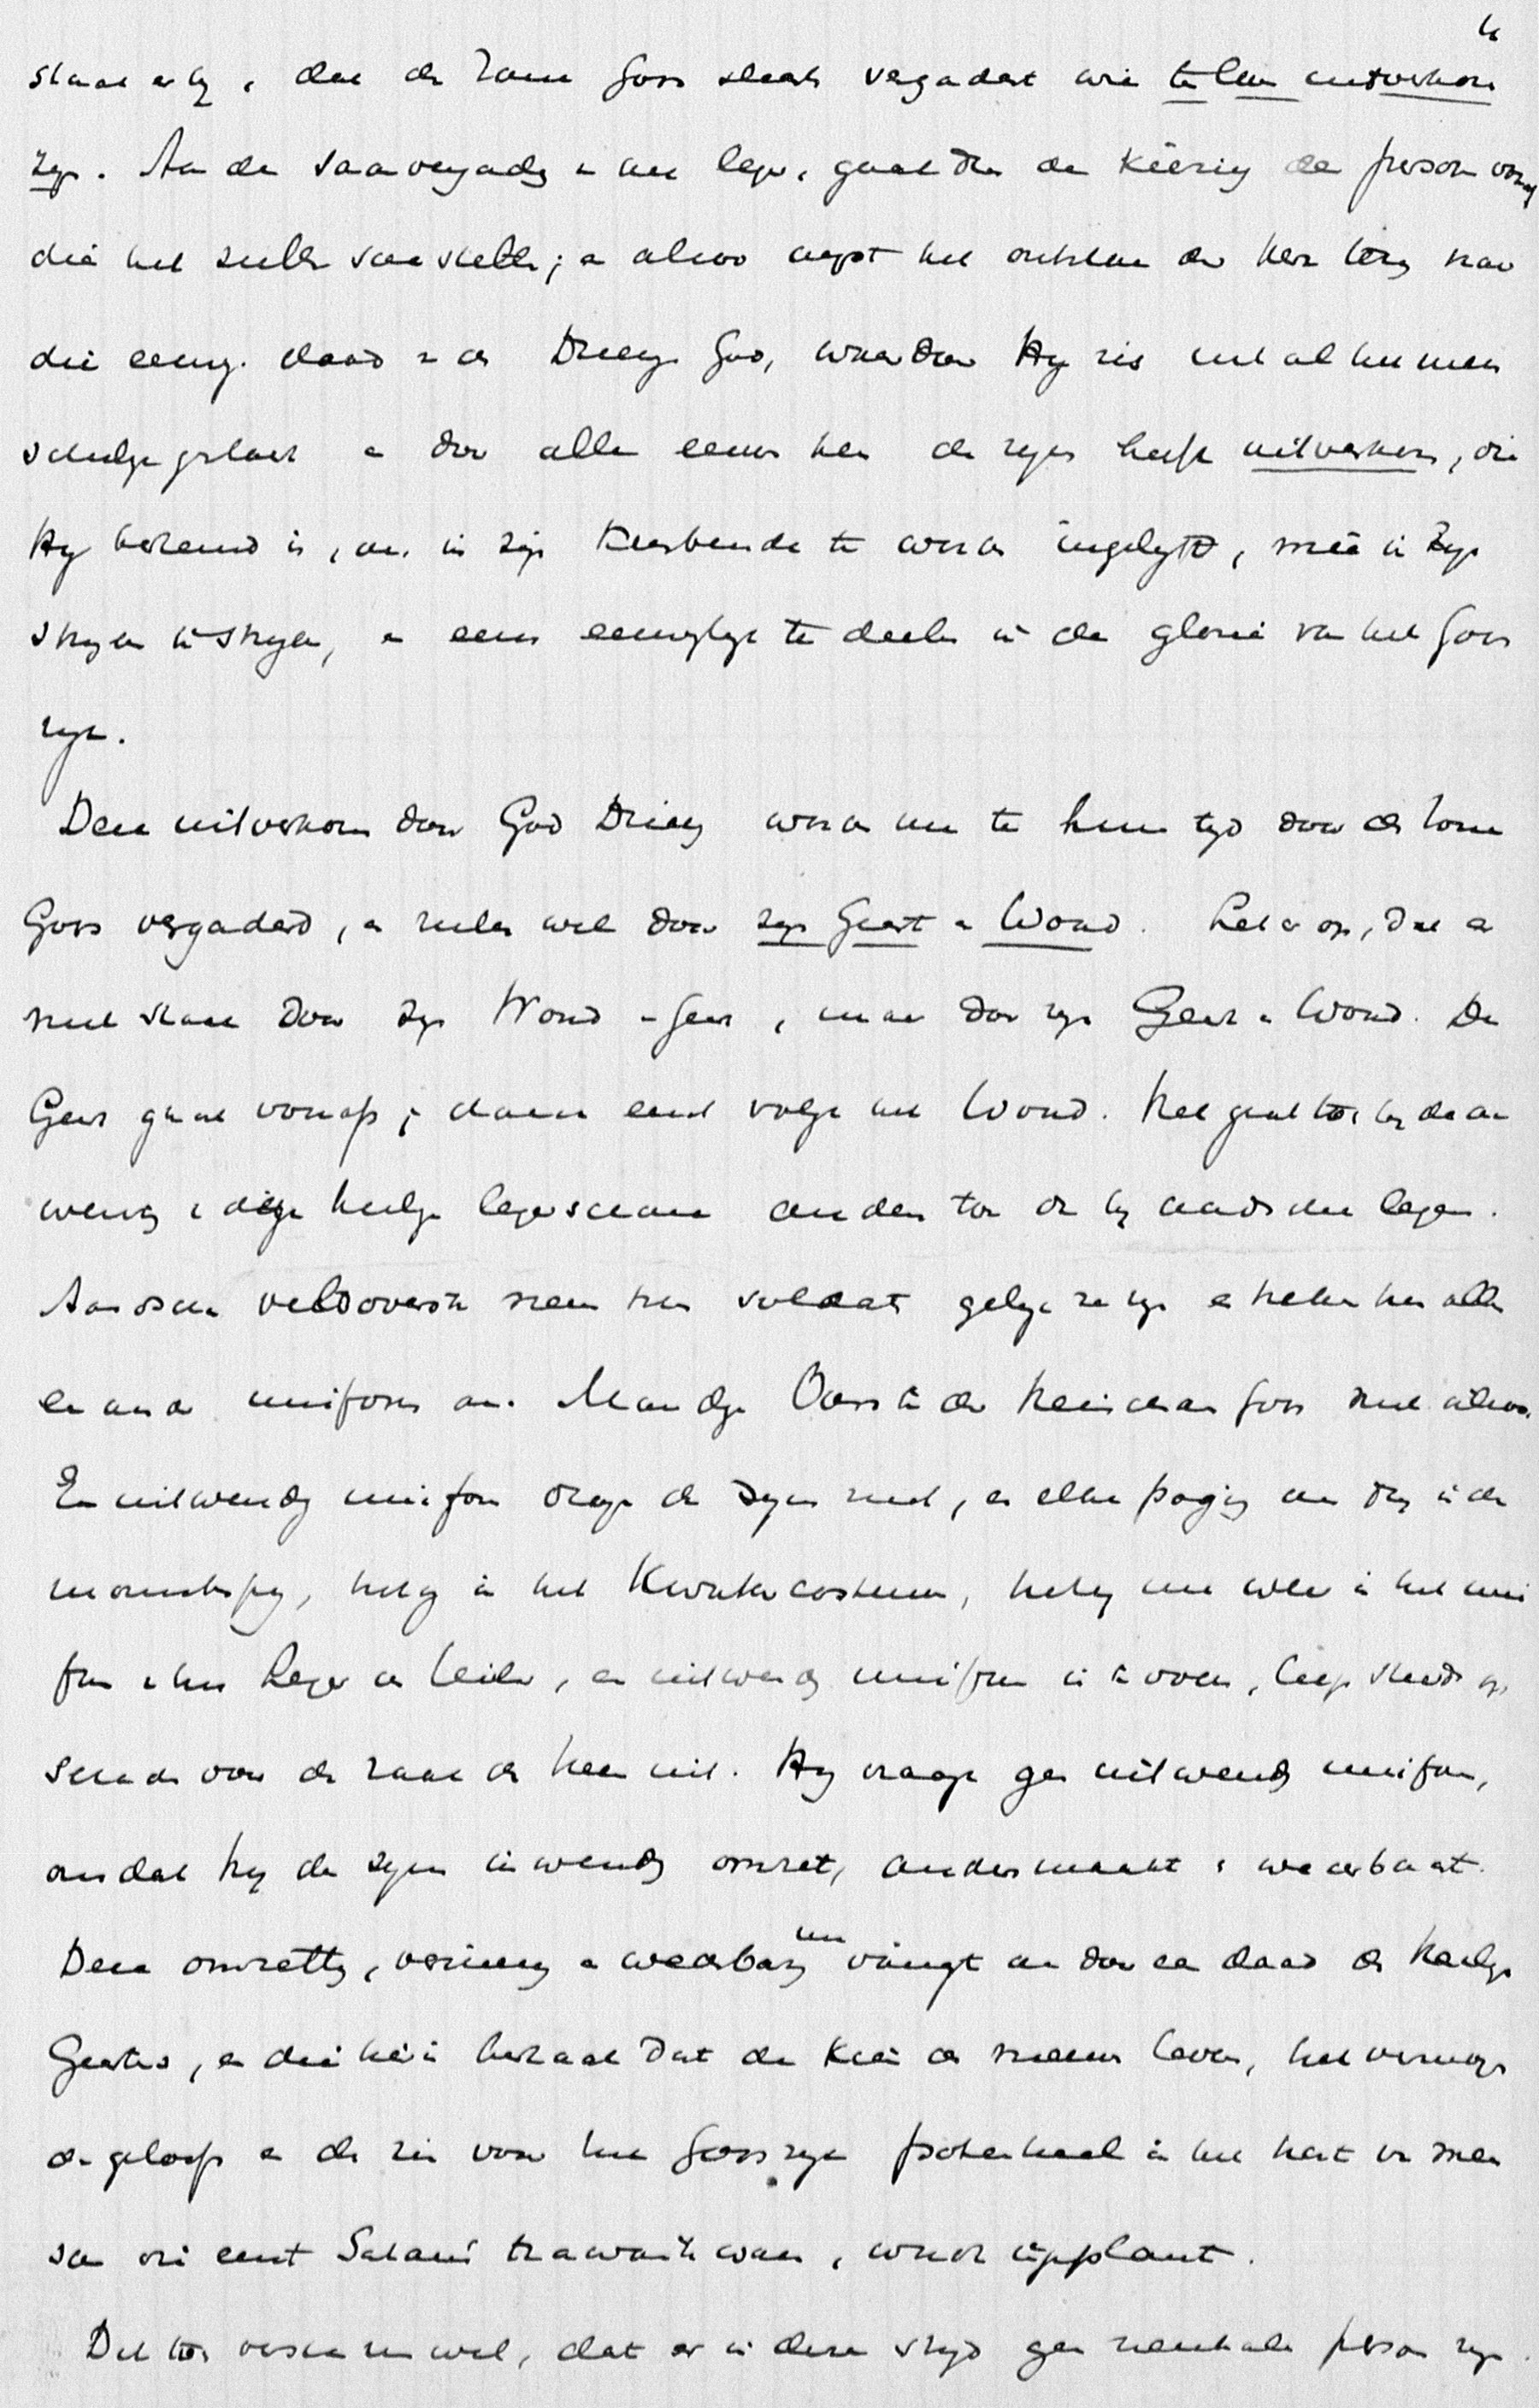 4
staat er by, dat de Zone Gods slechts vergadert wie te leven uitverkoren
zyn. Aan de saamvergadering van een leger, gaat dan de kiezing der personen vooraf
die het zullen saamstellen; en alzoo wyst het ontstaan der kerk terug naar
die eeuwige daad van den Drieënigen God, waardoor Hy zich uit al het men
schelyk geslacht en door alle eeuwen heen de zynen heeft uitverkoren, die
Hy bekend is, om in zijn Keurbende te worden ingelyfd, meê in Zyn
stryden te stryden, en eens eeuwiglyk te deelen in de glorie van het Gods
ryk.
Deze uitverkoren door God Drieënig worden nu te hunner tyd door den Zone
Gods vergaderd, en zulks wel door zyn Geest en Woord. Let er op, dat er
niet staat door zyn Woord en Geest, maar door zyn Geest en Woord. De
Geest gaat voorop; daarna eerst volgt het Woord. Het gaat toch by de aan
werving van deze heilige legerschare anders toe dan by aardsche legers.
Aardsche veldoversten nemen hun soldaten gelyk ze zyn en trekken hen allen
een ander uniform aan. Maar dit is in de Heirscharen Gods niet alzoo.
Een uitwendig uniform dragen de zynen niet, en elke poging om dit, in de
monnikspy, hetzy in het Kwakercostuum, hetzy nu weer in het uni
form van het Leger des Heils, een uitwendig uniform in te voeren, liep steeds op
schade voor de zaak des Heeren uit. Hy vraagt geen uitwendig uniform,
omdat Hy de zynen inwendig omzet, anders maakt en wederbaart.
Deze omzetting, vernieuwing en wederbaring nu vangt aan door een daad des Heiligen
Geestes, en die hierin bestaat dat de kiem des nieuwen levens, het vermogen
des geloofs en de zin voor het Godsryk potentieel in het hart van men
schen die eerst Satans trawanten waren, wordt ingeplant.
Dit toch versta men wel, dat er in dezen stryd geen neutrale personen zyn.